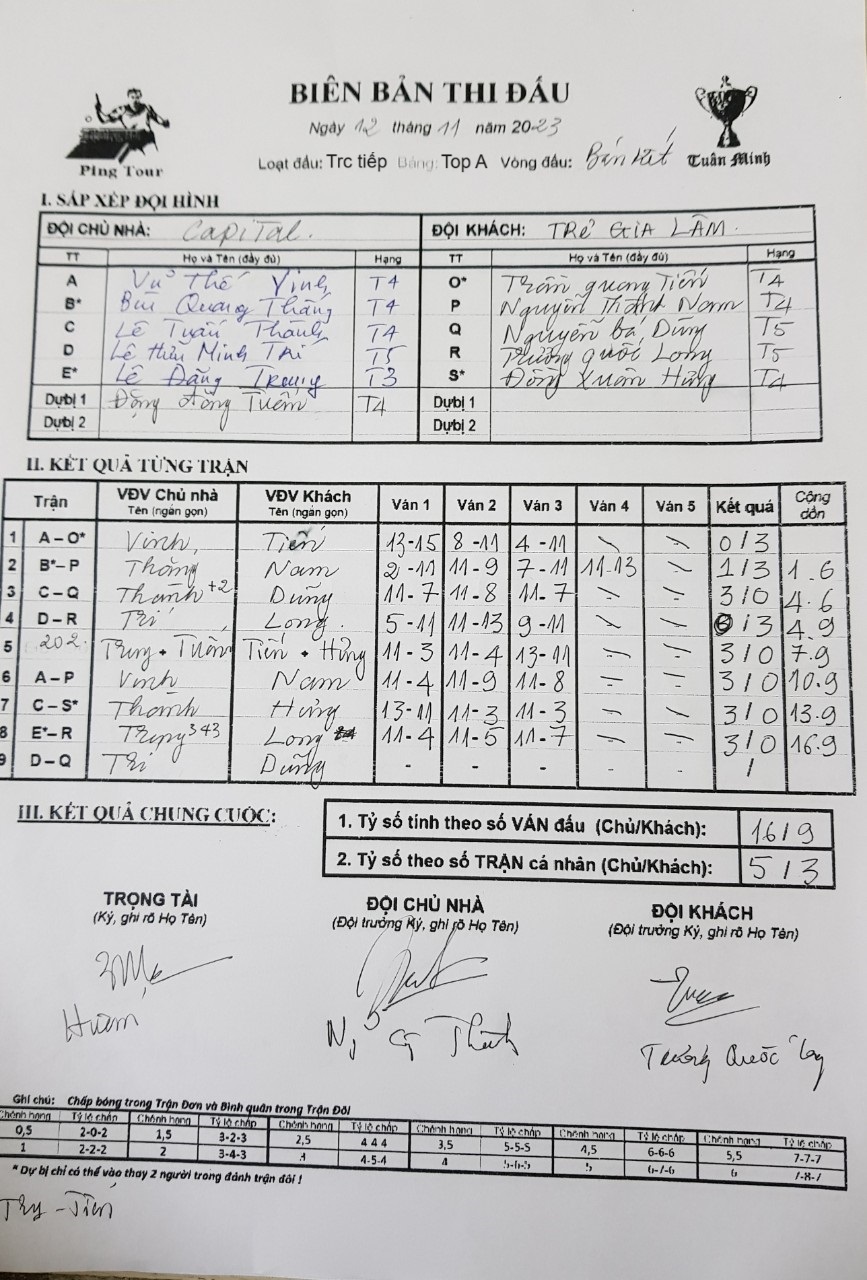 BIÊN BẢN THI ĐẤU
Ping Tour
Ngày 12 tháng 11 năm 2023
Loạt đấu: Trc tiếp Bảng: Top A Vòng đấu: Bán kết
Tuấn Minh
I. SẮP XẾP ĐỘI HÌNH
ĐỘI CHỦ NHÀ: Capital. ĐỘI KHÁCH: TRẺ GIA LÂM.
TT Họ và Tên (đầy đủ) Hạng TT Họ và Tên (đầy đủ) Hạng
A Vũ Thế Vinh T4 O* Trần quang Tiến T4
B* Bùi Quang Thắng T4 P Nguyễn Thành Nam T4
C Lê Tuấn Thành T4 Q Nguyễn bá Dũng T5
D Lê Hữu Minh Trí T5 R Trương quốc Long T5
E* Lê Đăng Trung T3 S* Đồng Xuân Hưng T4
Dự bị 1 Đặng Đăng Tuấn T4 Dự bị 1
Dự bị 2 Dự bị 2
II. KẾT QUẢ TỪNG TRẬN
Trận VĐV Chủ nhà VĐV Khách Ván 1 Ván 2 Ván 3 Ván 4 Ván 5 Kết quả Cộng dồn
Tên (ngắn gọn) Tên (ngắn gọn)
1 A – O* Vinh Tiến 13-15 8-11 4-11 - - 0/3
2 B* – P Thắng Nam 2-11 11-9 7-11 11-13 - 1/3 1.6
3 C – Q Thành +2 Dũng 11-7 11-8 11-7 - - 3/0 4.6
4 D – R Trí Long 5-11 11-13 9-11 - - 0/3 4.9
5 202. Trung + Tuấn Tiến + Hưng 11-3 11-4 13-11 - - 3/0 7.9
6 A – P Vinh Nam 11-4 11-9 11-8 - - 3/0 10.9
7 C – S* Thành Hưng 13-11 11-3 11-3 - - 3/0 13.9
8 E* – R Trung 343 Long 11-4 11-5 11-7 - - 3/0 16.9
9 D – Q Trí Dũng - - - - - /
III. KẾT QUẢ CHUNG CUỘC:
1. Tỷ số tính theo số VÁN đấu (Chủ/Khách): 16/9
2. Tỷ số theo số TRẬN cá nhân (Chủ/Khách): 5/3
TRỌNG TÀI ĐỘI CHỦ NHÀ ĐỘI KHÁCH
(Ký, ghi rõ Họ Tên) (Đội trưởng Ký, ghi rõ Họ Tên) (Đội trưởng Ký, ghi rõ Họ Tên)
Trương Quốc Long
Ghi chú: Chấp bóng trong Trận Đơn và Bình quân trong Trận Đôi
Chênh hạng Tỷ lệ chấp Chênh hạng Tỷ lệ chấp Chênh hạng Tỷ lệ chấp Chênh hạng Tỷ lệ chấp Chênh hạng Tỷ lệ chấp Chênh hạng Tỷ lệ chấp
0,5 2-0-2 1,5 3-2-3 2,5 4 4 4 3,5 5-5-5 4,5 6-6-6 5,5 7-7-7
1 2-2-2 2 3-4-3 4-5-4 4 5-6-5 5 6-7-6 6 7-8-7
* Dự bị chỉ có thể vào thay 2 người trong đánh trận đôi !